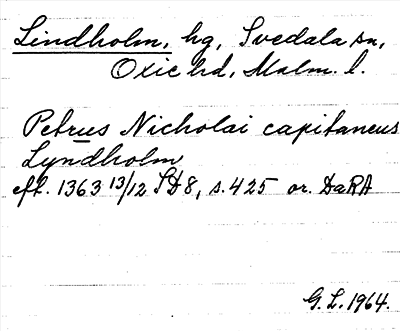 Lindholm, hg, Svedala sn,
Oxie hd, Malm. l.
Petrus Nicholai capitaneus
Lyndholm
eft. 1363 13/12 SD8, s. 425 or. DaRA
G. L. 1964.